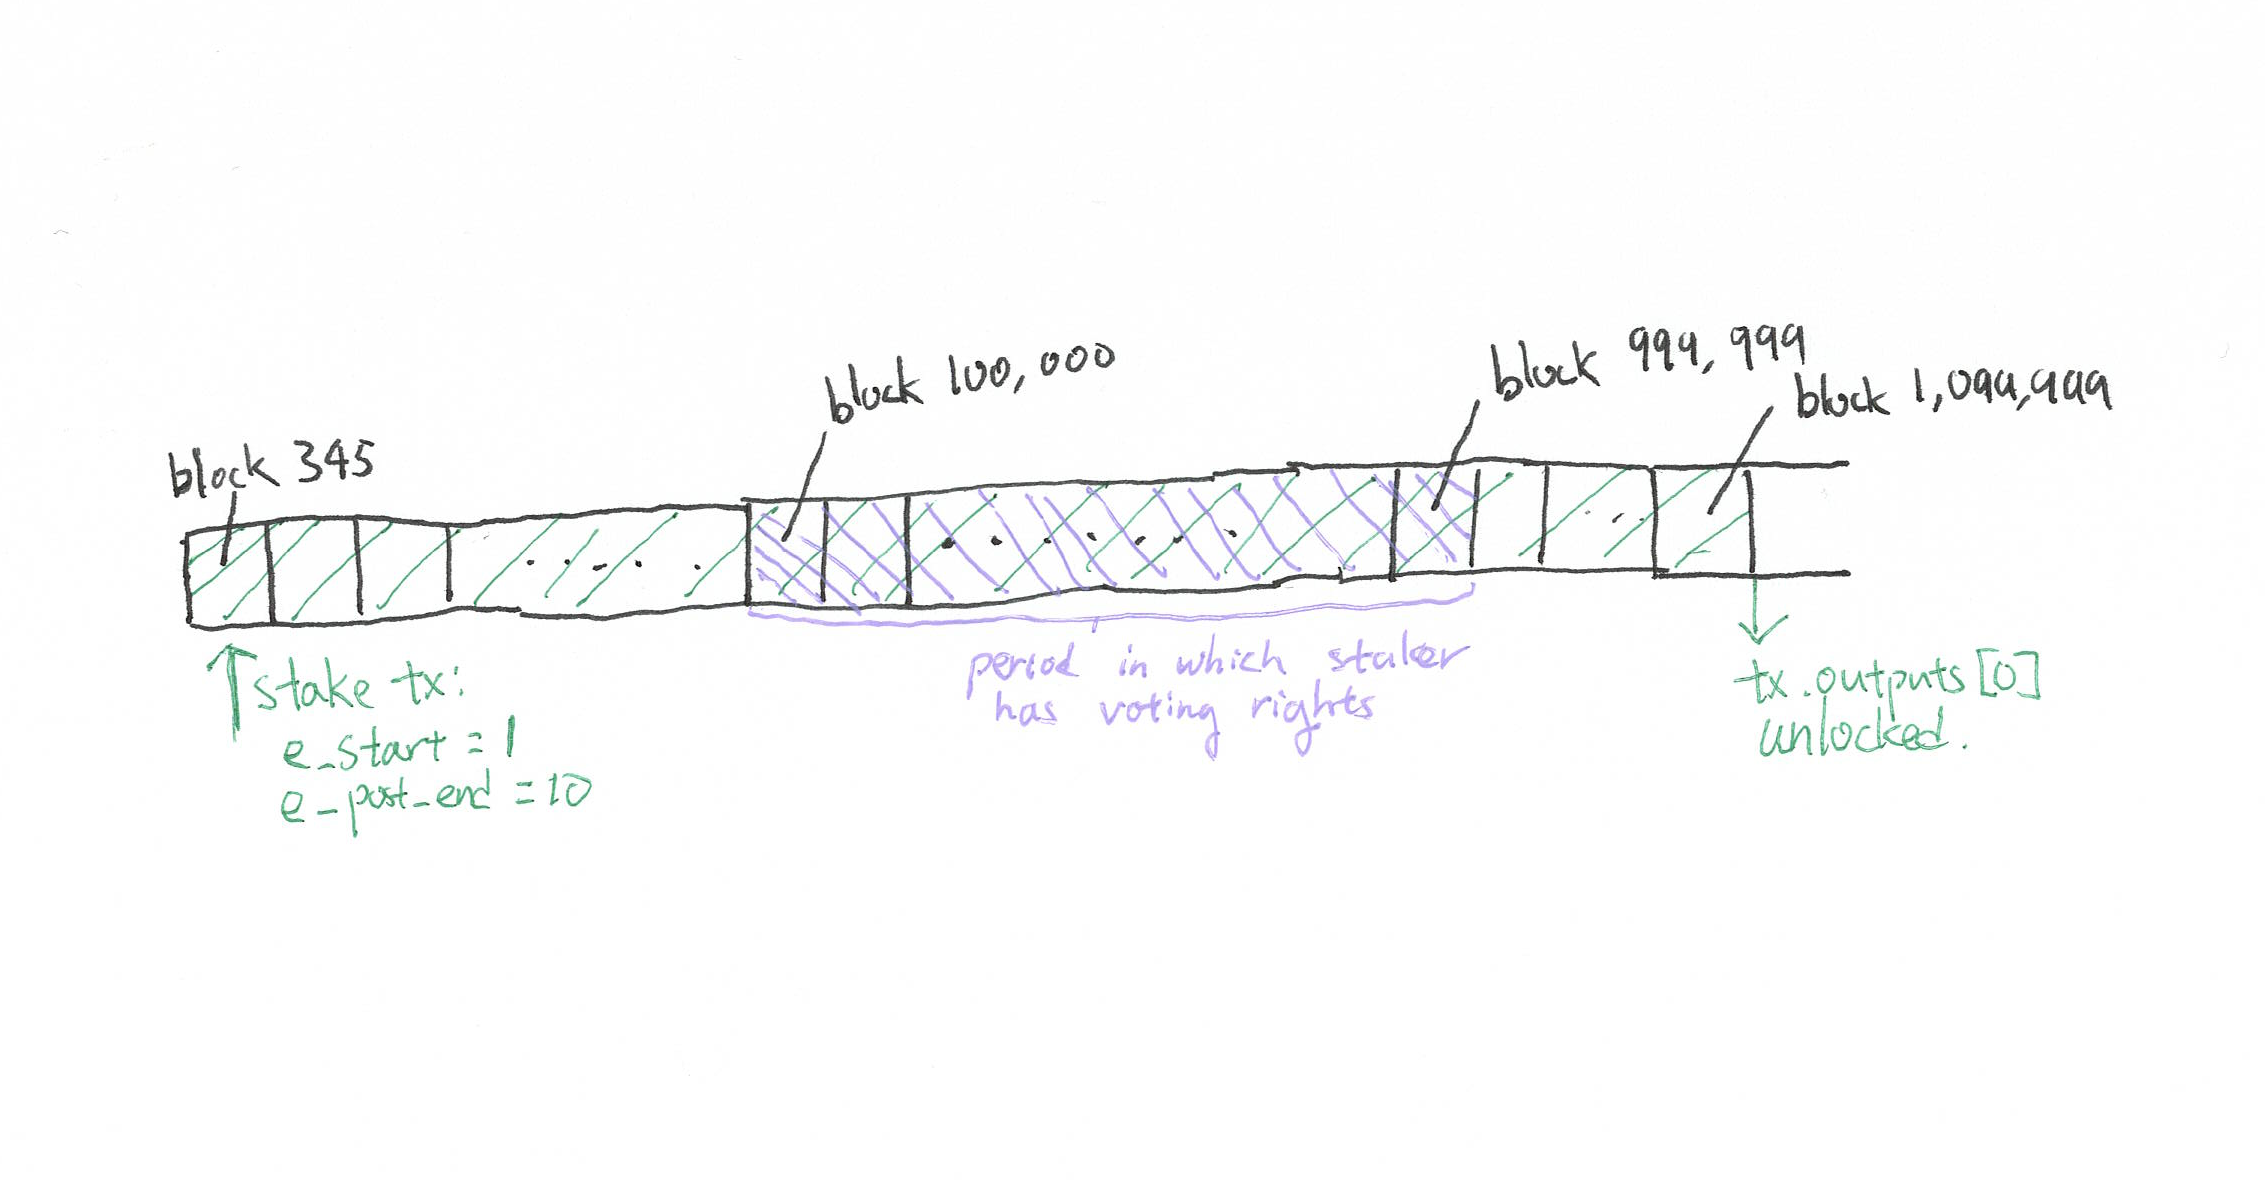 block 345
block 100,000
block 999,999
block 1,099,999
stake tx:
e_start = 1
e_post_end = 10
period in which staker
has voting rights
tx.outputs[0]
unlocked.